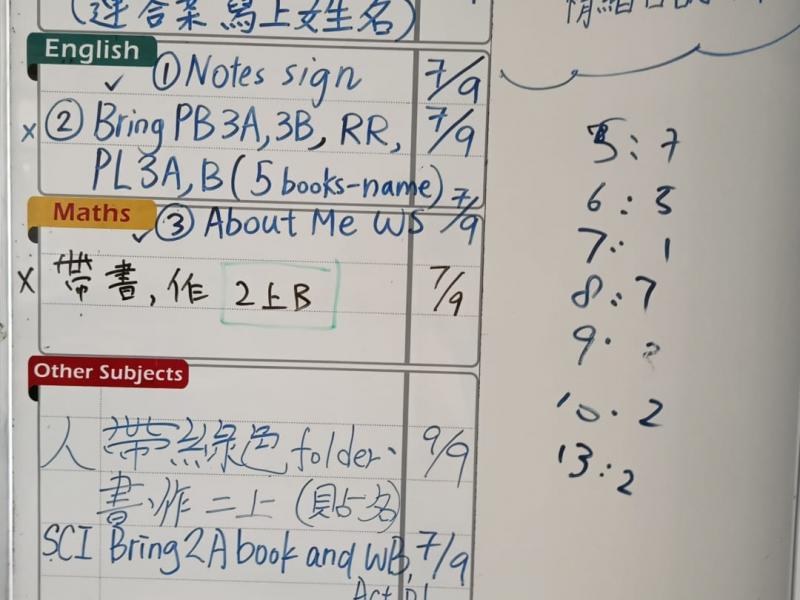 (運合菜寫上姓名)
English
✓ ①Notes sign 7/9
x ② Bring PB 3A, 3B, RR, 7/9
PL 3A, B (5 books-name) 7/9
Maths
✓③ About Me WS
X 帶書,作 2上B 7/9
Other Subjects
人 帶綠色 folder、 9/9
書、作二上 (貼名)
SCI Bring 2A book and WB, 7/9
5:7
6:3
7: 1
8:7
9.
10. 2
13:2